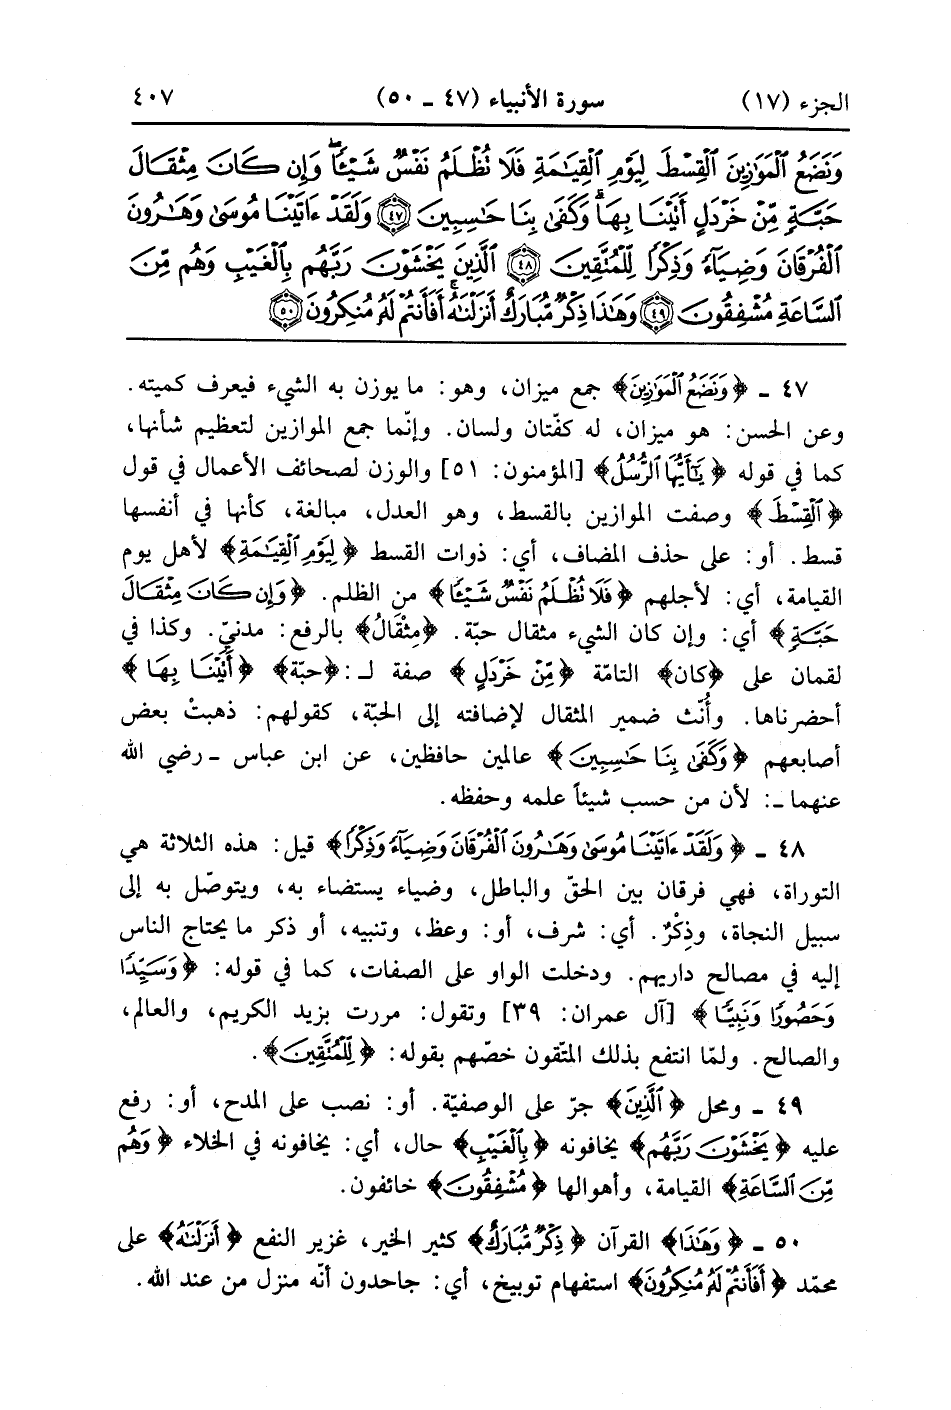 الجزء (١٧) سورة الأنبياء (٤٧ ـ ٥٠) ٤٠٧
وَنَضَعُ ٱلْمَوَٰزِينَ ٱلْقِسْطَ لِيَوْمِ ٱلْقِيَٰمَةِ فَلَا تُظْلَمُ نَفْسٌ شَيْـًٔا ۖ وَإِن كَانَ مِثْقَالَ
حَبَّةٍ مِّنْ خَرْدَلٍ أَتَيْنَا بِهَا ۗ وَكَفَىٰ بِنَا حَٰسِبِينَ ﴿٤٧﴾ وَلَقَدْ ءَاتَيْنَا مُوسَىٰ وَهَٰرُونَ
ٱلْفُرْقَانَ وَضِيَآءً وَذِكْرًا لِّلْمُتَّقِينَ ﴿٤٨﴾ ٱلَّذِينَ يَخْشَوْنَ رَبَّهُم بِٱلْغَيْبِ وَهُم مِّنَ
ٱلسَّاعَةِ مُشْفِقُونَ ﴿٤٩﴾ وَهَٰذَا ذِكْرٌ مُّبَارَكٌ أَنزَلْنَٰهُ ۚ أَفَأَنتُمْ لَهُۥ مُنكِرُونَ ﴿٥٠﴾
٤٧ ـ ﴿وَنَضَعُ ٱلْمَوَٰزِينَ﴾ جمع ميزان، وهو: ما يوزن به الشيء فيعرف كميته.
وعن الحسن: هو ميزان، له كفّتان ولسان. وإنّما جمع الموازين لتعظيم شأنها،
كما في قوله ﴿يَٰٓأَيُّهَا ٱلرُّسُلُ﴾ [المؤمنون: ٥١] والوزن لصحائف الأعمال في قول
﴿ٱلْقِسْطَ﴾ وصفت الموازين بالقسط، وهو العدل، مبالغة، كأنها في أنفسها
قسط. أو: على حذف المضاف، أي: ذوات القسط ﴿لِيَوْمِ ٱلْقِيَٰمَةِ﴾ لأهل يوم
القيامة، أي: لأجلهم ﴿فَلَا تُظْلَمُ نَفْسٌ شَيْـًٔا﴾ من الظلم. ﴿وَإِن كَانَ مِثْقَالَ
حَبَّةٍ﴾ أي: وإن كان الشيء مثقال حبّة. ﴿مِثْقَالُ﴾ بالرفع: مدنيّ. وكذا في
لقمان على ﴿كان﴾ التامّة ﴿مِّنْ خَرْدَلٍ﴾ صفة لـ: ﴿حبّة﴾ ﴿أَتَيْنَا بِهَا﴾
أحضرناها. وأُنّث ضمير المثقال لإضافته إلى الحبّة، كقولهم: ذهبتْ بعض
أصابعهم ﴿وَكَفَىٰ بِنَا حَٰسِبِينَ﴾ عالمين حافظين، عن ابن عباس ـ رضي الله
عنهما ـ: لأن من حسب شيئاً علمه وحفظه.
٤٨ ـ ﴿وَلَقَدْ ءَاتَيْنَا مُوسَىٰ وَهَٰرُونَ ٱلْفُرْقَانَ وَضِيَآءً وَذِكْرًا﴾ قيل: هذه الثلاثة هي
التوراة، فهي فرقان بين الحقّ والباطل، وضياء يستضاء به، ويتوصّل به إلى
سبيل النجاة، وذِكْرٌ. أي: شرف، أو: وعظ، وتنبيه، أو ذكر ما يحتاج الناس
إليه في مصالح داريهم. ودخلت الواو على الصفات، كما في قوله: ﴿وَسَيِّدًا
وَحَصُورًا وَنَبِيًّا﴾ [آل عمران: ٣٩] وتقول: مررت بزيد الكريم، والعالم،
والصالح. ولمّا انتفع بذلك المتّقون خصّهم بقوله: ﴿لِّلْمُتَّقِينَ﴾.
٤٩ ـ ومحل ﴿ٱلَّذِينَ﴾ جرّ على الوصفيّة. أو: نصب على المدح، أو: رفع
عليه ﴿يَخْشَوْنَ رَبَّهُم﴾ يخافونه ﴿بِٱلْغَيْبِ﴾ حال، أي: يخافونه في الخلاء ﴿وَهُم
مِّنَ ٱلسَّاعَةِ﴾ القيامة، وأهوالها ﴿مُشْفِقُونَ﴾ خائفون.
٥٠ ـ ﴿وَهَٰذَا﴾ القرآن ﴿ذِكْرٌ مُّبَارَكٌ﴾ كثير الخير، غزير النفع ﴿أَنزَلْنَٰهُ﴾ على
محمّد ﴿أَفَأَنتُمْ لَهُۥ مُنكِرُونَ﴾ استفهام توبيخ، أي: جاحدون أنّه منزل من عند الله.